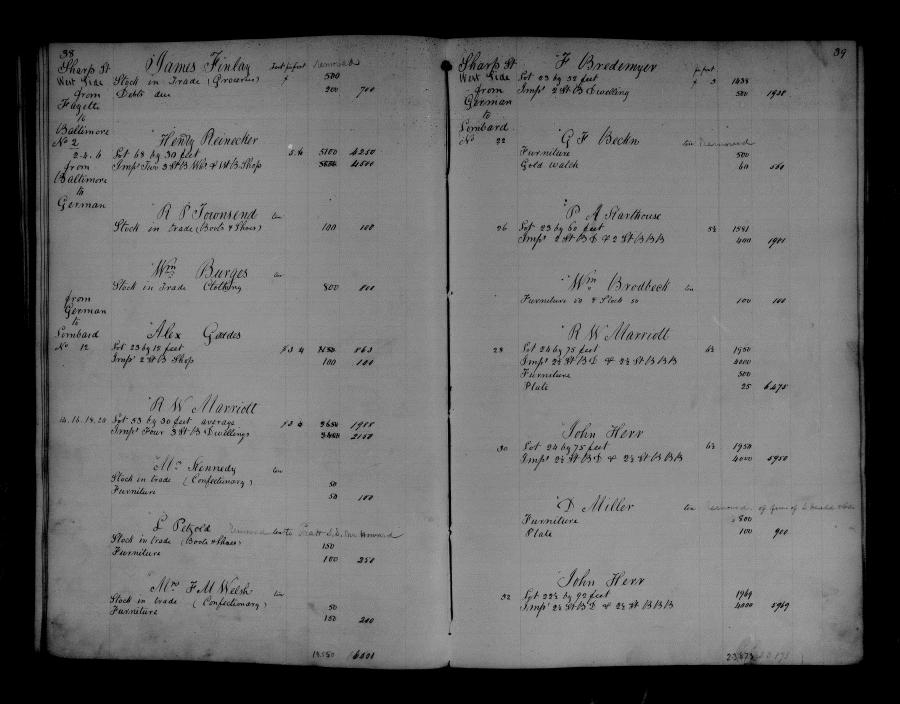 38
Sharp St
West Side
from
Fayette
to
Baltimore
James Finlay Removed
Stock in Trade (Groceries) 500
Debts due 200 700
No 2
2.4.6
from
Baltimore
to
German
Henry Reinecker
Lot 68 by 30 feet 5100 4250
Imps Two 3 St B. Whs & 1 St B Shop 4500
R P Townsend ten
Stock in trade (Boots & Shoes) 100 100
Wm Burges ten
Stock in Trade Clothing 800 800
from
German
to
Lombard
No 12
Alex Gaddes
Lot 23 by 15 feet 863
Imps 2 St B Shop 100 100
R W Marriott
14.16.18.20 Lot 53 by 30 feet average
Imps Four 3 St B Dwellings
Mrs Kennedy ten
Stock in trade (Confectionary) 50
Furniture 50 100
L Petzold Removed to Pratt
Stock in trade (Boots & Shoes) 150
Furniture 100 250
Mrs F M Welsh ten
Stock in trade (Confectionary) 50
Furniture 150 200
39
Sharp St
West Side
from
German
to
Lombard
F Bredemyer
Lot 23 by 52 feet 1438
Imps 2 St B Dwelling 500 1938
No 22 G F Beckn ten Removed
Furniture 500
Gold watch 60 560
P A Starthouse
26 Lot 23 by 60 feet 5½ 1581
Imps 2 St B D & 2 St B B B 400 1981
Wm Brodbeck ten
Furniture 50 & Stock 50 100 100
R W Marriott
28 Lot 24 by 75 feet 6½ 1950
Imps 2½ St B D & 2½ St B B B 4000
Furniture 500
Plate 25 6475
John Herr
30 Lot 24 by 75 feet 6½ 1950
Imps 2½ St B D & 2½ St B B B 4000 5950
D Miller ten Removed
Furniture 800
Plate 100 900
John Herr
32 Lot 22½ by 92 feet 1969
Imps 2½ St B D & 2½ St B B B 4000 5969
23,873